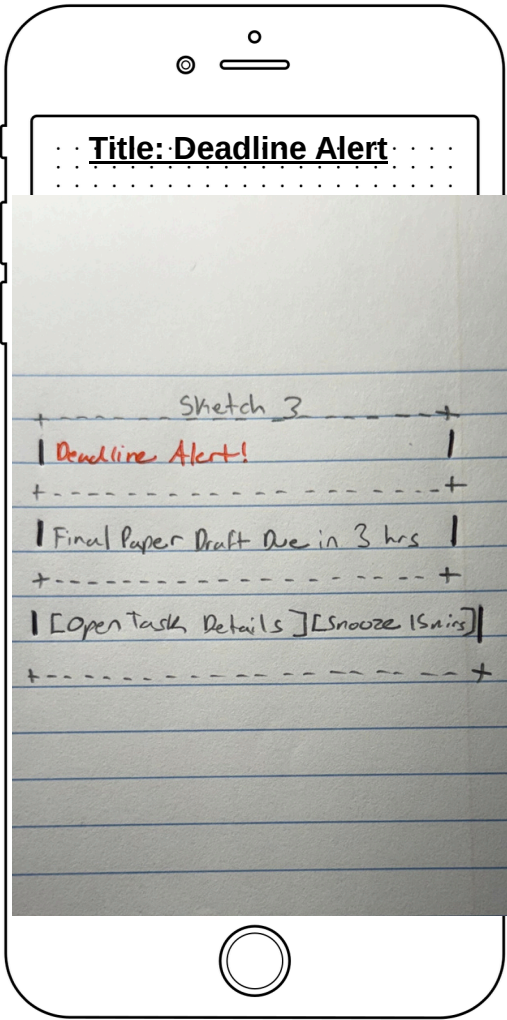 Title: Deadline Alert
Sketch 3
Deadline Alert!
Final Paper Draft Due in 3 hrs
[Open Task Details][Snooze 15mins]